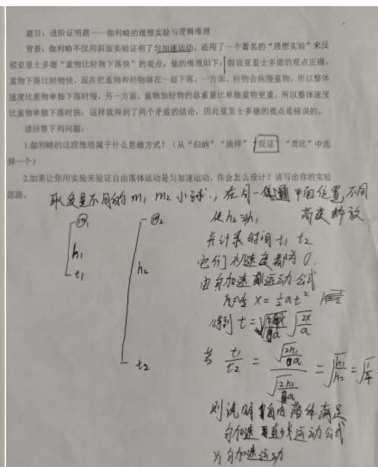 题目：进阶证明题——伽利略的理想实验与逻辑推理
背景：伽利略不仅用斜面实验证明了匀加速运动，还用了一个著名的“理想实验”来反
驳亚里士多德“重物比轻物下落快”的观点。他的推理如下：假设亚里士多德的观点正确，
重物下落比轻物快。现在把重物和轻物绑在一起下落，一方面，轻物会拖慢重物，所以整体
速度比重物单独下落时慢。另一方面，重物加轻物的总重量比单独重物更重，所以整体速度
比重物单独下落时快。这样就得到了两个矛盾的结论，因此亚里士多德的观点是错误的。
请回答下列问题：
1.伽利略的这段推理属于什么思维方式？（从“归纳”“演绎”“反证”“类比”中选
择一个）
2.如果让你用实验来验证自由落体运动是匀加速运动，你会怎么设计？请写出你的实验
思路。
取质量不同的 m₁ m₂ 小球，在同一 位置，不同
使 h₂ h₁ 高度释放
并计录时间 t₁ t₂
它们初速度都为0.
由匀加速 运动公式
x = ½at²
得到 t = √2x/a
若 t₁/t₂ = √2h₁/a / √2h₂/a = √h₁/h₂ = √1/4
则说明自由落体满足
匀加速直线运动公式
为匀加速运动
m₁
h₁
t₁
m₂
h₂
t₂